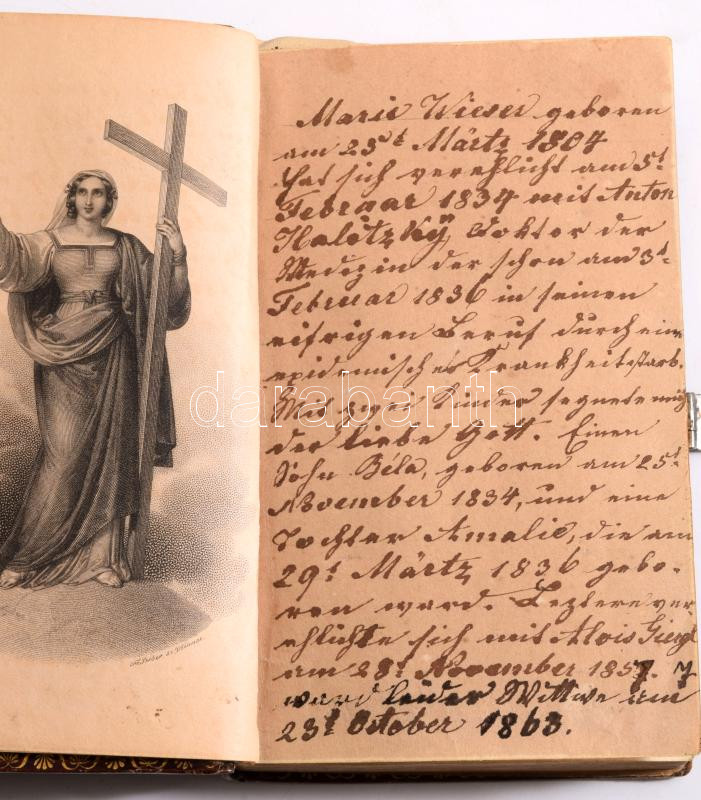 Marie Wieser geboren
am 25t Märtz 1804
Hat sich verehlicht am 5t
Februar 1834 mit Anton
Halitzkÿ Doktor der
Medezin der schon am 3t
Februar 1836 in seinen
eifrigen Beruf durch eine
epidemischer Krankheit starb.
Mit zwei Kinder segnete mich
der liebe Gott. Einen
Sohn Béla, geboren am 25t
November 1834, und eine
Tochter Amalie, die am
29t Märtz 1836 gebo-
ren ward. Leztere ver
ehlichte sich mit Alois Giergl
am 28t November 1857.
ward leider Wittwe am
23t October 1863.
darabanth